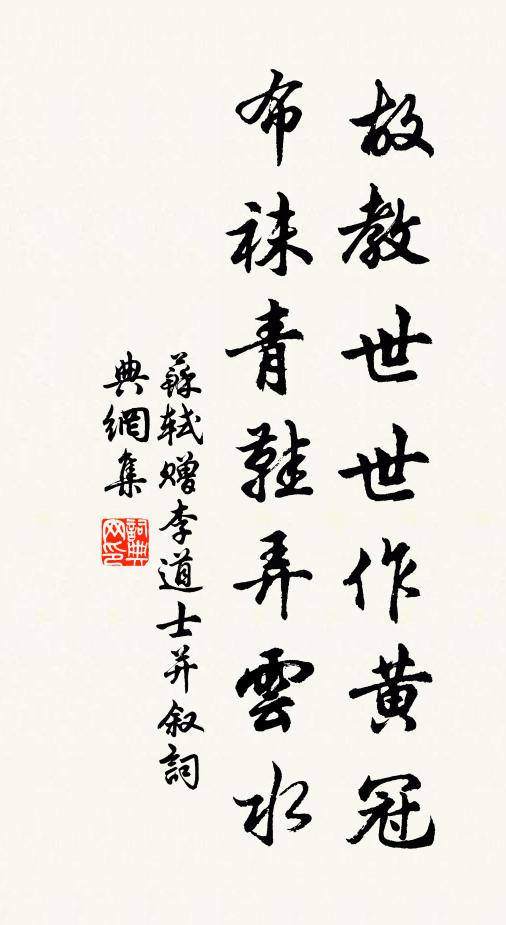 故教世世作黄冠
布袜青鞋弄雲水
蘇軾贈李道士并叙詞
典網集
詞典
网印